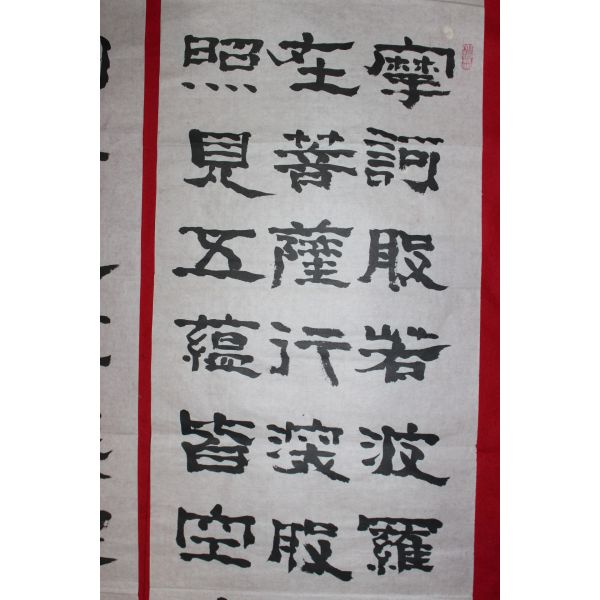 摩訶般若波羅
在菩薩行深般
照見五蘊皆空